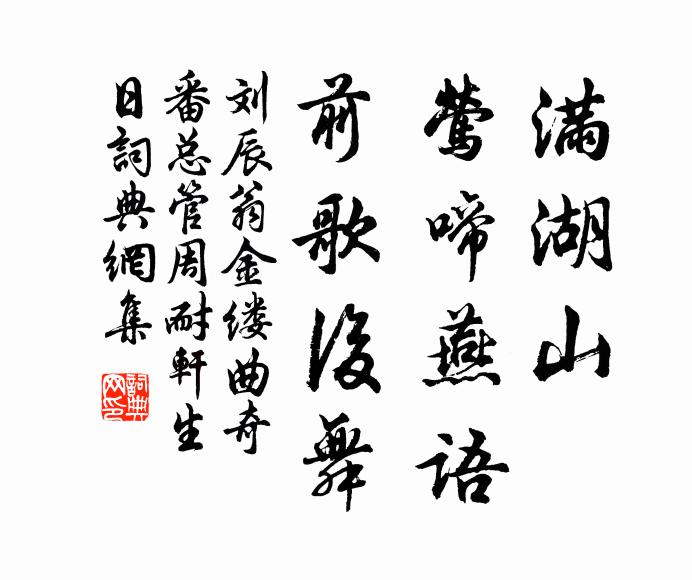 滿湖山
鶯啼燕語
前歌後舞
刘辰翁金缕曲奇
番总管周耐軒生
日詞典網集
詞典
网印